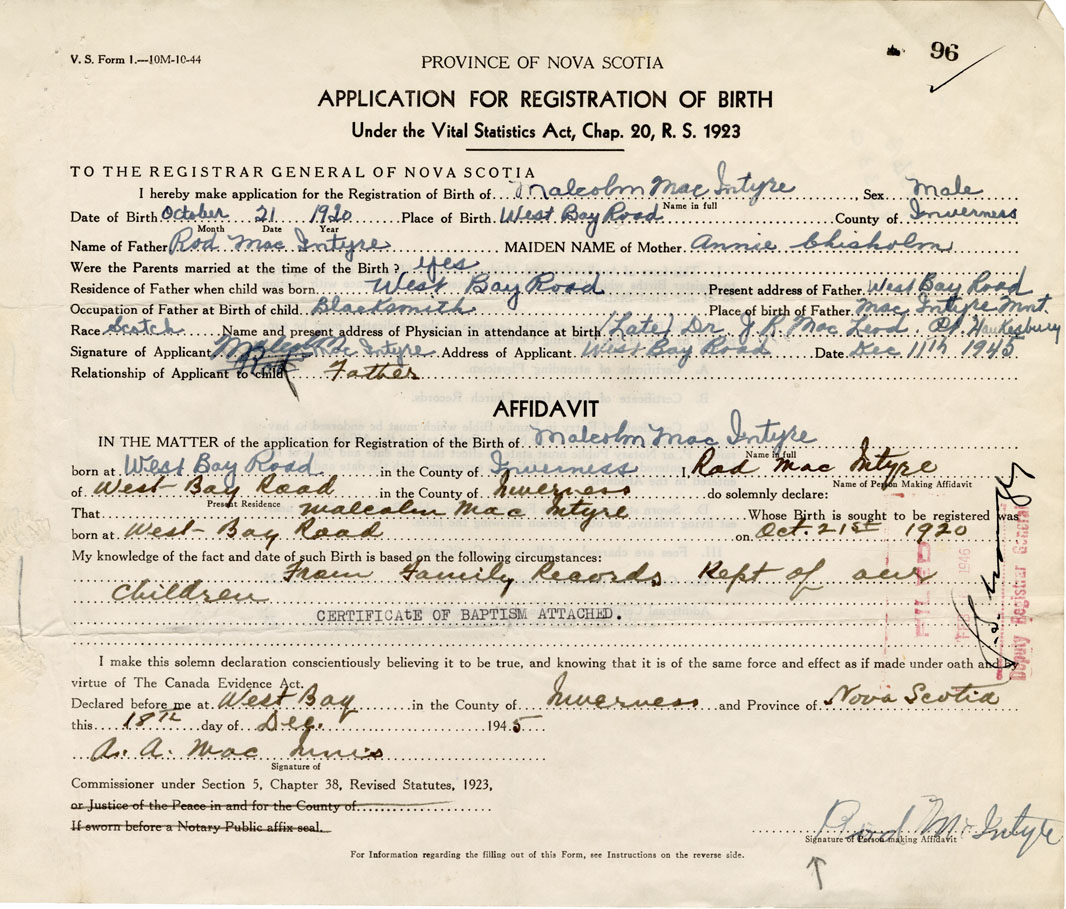 V. S. Form 1.—10M-10-44
96
PROVINCE OF NOVA SCOTIA
APPLICATION FOR REGISTRATION OF BIRTH
Under the Vital Statistics Act, Chap. 20, R. S. 1923
TO THE REGISTRAR GENERAL OF NOVA SCOTIA
I hereby make application for the Registration of Birth of Malcolm Mac Intyre, Sex Male
Name in full
Date of Birth October 21 1920 Place of Birth West Bay Road County of Inverness
Month Date Year
Name of Father Rod Mac Intyre MAIDEN NAME of Mother Annie Chisholm
Were the Parents married at the time of the Birth? yes
Residence of Father when child was born West Bay Road Present address of Father West Bay Road
Occupation of Father at Birth of child Blacksmith Place of birth of Father Mac Intyre Mnt.
Race Scotch Name and present address of Physician in attendance at birth (Late) Dr J. R. Mac Leod Pt. Hawkesbury
Signature of Applicant Malcolm Mac Intyre Address of Applicant West Bay Road Date Dec 11th 1945
Relationship of Applicant to child Father
AFFIDAVIT
IN THE MATTER of the application for Registration of the Birth of Malcolm Mac Intyre
Name in full
born at West Bay Road in the County of Inverness I Rod Mac Intyre
Name of Person Making Affidavit
of West Bay Road in the County of Inverness do solemnly declare:
Present Residence
That Malcolm Mac Intyre Whose Birth is sought to be registered was
born at West Bay Road on Oct. 21st 1920
My knowledge of the fact and date of such Birth is based on the following circumstances:
From Family Records Kept of our
children
CERTIFICATE OF BAPTISM ATTACHED.
FILED
1946
Deputy Registrar General
I make this solemn declaration conscientiously believing it to be true, and knowing that it is of the same force and effect as if made under oath and by
virtue of The Canada Evidence Act.
Declared before me at West Bay in the County of Inverness and Province of Nova Scotia
this 18th day of Dec. 1945
A. A. Mac Innis
Signature of
Commissioner under Section 5, Chapter 38, Revised Statutes, 1923,
or Justice of the Peace in and for the County of
If sworn before a Notary Public affix seal.
Rod McIntyre
Signature of Person making Affidavit
For Information regarding the filling out of this Form, see Instructions on the reverse side.